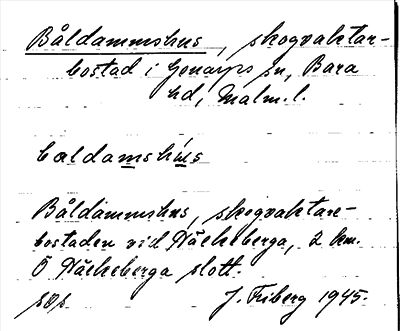 Båldammshus, skogvaktar-
bostad i Genarps sn, Bara
hd, Malm. l.
bældamshús
Båldammshus, skogvaktare-
bostaden vid Häckeberga, 2 km.
Ö Häckeberga slott.
J. Friberg 1945.